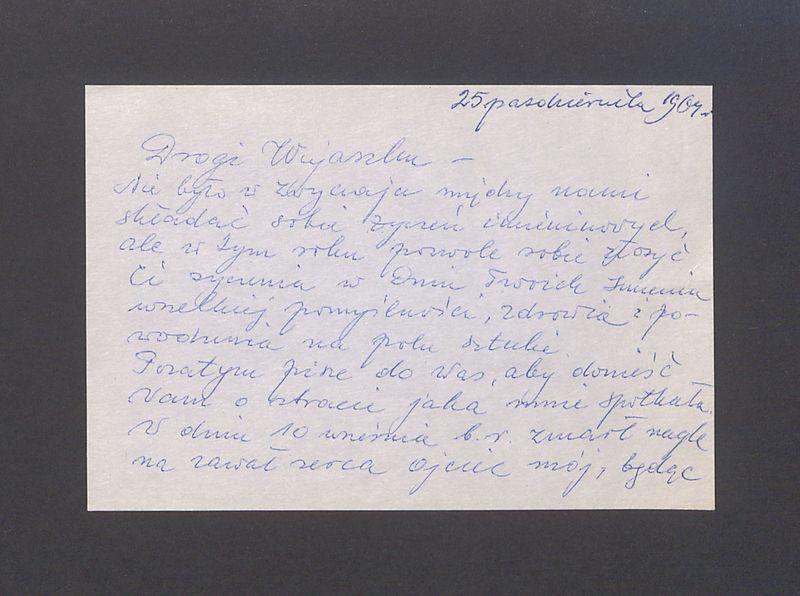 25 października 1964 r.
Drogi Wujaszku –
Nie było w zwyczaju między nami
składać sobie życzeń imieninowych,
ale w tym roku pozwolę sobie złożyć
Ci życzenia w Dniu Twoich Imienin
wszelkiej pomyślności, zdrowia i po-
wodzenia na polu sztuki.
Pozatym piszę do Was, aby donieść
Vam o stracie jaka mnie spotkała.
W dniu 10 września b.r. zmarł nagle
na zawał serca Ojciec mój, będąc